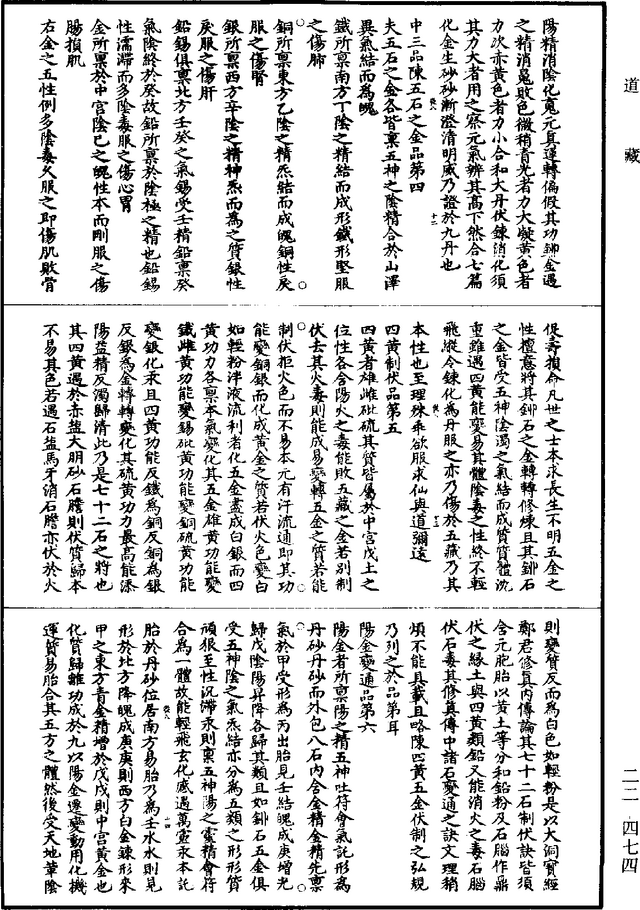 道藏
陽精消陰化䰟元真運轉偏假其功鉚金遇
之精消䰟敗色微稍青光者力大變黃色者
力次赤黃色者力小合和大丹伏鍊消化須
其力大者用之察元氣辨其高下然合七篇
化金生砂砂漸澄清明威乃證於九丹也
中三品陳五石之金品第四
夫五石之金各皆稟五神之陰精合於山澤
異氣結而為魄
鐵所稟南方丁陰之精結而成形鐵形堅服
之傷肺
銅所稟東方乙陰之精炁結而成魄銅性戾
服之傷腎
銀所稟西方辛陰之精神炁而為之質銀性
戾服之傷肝
鉛錫俱稟北方壬癸之氣錫受壬精鉛稟癸
氣陰終於癸故鉛所稟於陰極之精也鉛錫
性濡滯而多陰毒服之傷心胃
金所稟於中宮陰己之魄性本而剛服之傷
腸損肌
右金之五性例多陰毒久服之即傷肌敗骨
促壽損命凡世之士本求長生不明五金之
性擅意將其鉚石之金轉轉修煉且其鉚石
之金皆受五神陰濁之氣結而成質質體沈
重雖遇四黃能變易其體陰毒之性終不輕
飛縱令鍊化為丹服之亦乃傷於五藏乃其
本性也至理殊乖欲服求仙與道彌遠
四黃制伏品第五
四黃者雄雌砒硫其質皆屬於中宮戊土之
位性各含陽火之毒能敗五藏之金若別制
伏去其火毒則能成易變轉五金之質若能
制伏拒火色而不易本元有汗流通即其功
能變銅銀而化成黃金之質若伏火色變白
如輕粉泮液流利者化五金盡成白銀而四
黃功力各稟本氣變化其五金雄黃功能變
鐵雌黃功能變錫砒黃功能變銅硫黃功能
變銀化汞且四黃功能反鐵為銅反銅為銀
反銀為金轉轉變化其硫黃功力最高能添
陽益精反濁歸清此乃是七十二石之將也
其四黃遇於赤鹽大明砂石膽則伏質歸本
不易其色若遇石鹽馬牙消石膽亦伏於火
則變質反而為白色如輕粉是以大洞寶經
鄭君修真內傳論其七十二石制伏訣皆須
含元胞胎以黃土等分和鉛粉及石腦作鼎
伏之緣土與四黃類鉛又能消火之毒石腦
伏石毒其修真傳中諸石變通之訣文理稍
煩不能具載且略陳四黃五金伏制之弘規
乃列之於品第耳
陽金變通品第六
陽金者所稟陽之精五神吐符會氣託形為
丹砂丹砂而外包八石內含金精金精先稟
氣於甲受形為丙出胎見壬結魄成庚增光
歸戊陰陽昇降各歸其類且如鉚石五金俱
受五神陰之氣炁結亦分為五類之形形質
頑狠至性沉滯汞則稟五神陽之靈精會符
合為一體故能輕飛玄化感遇萬靈汞本託
胎於丹砂位居南方易胎乃為壬水水則見
形於北方降魄成庚庚則西方白金鍊形來
甲之東方青金精增於戊戊則中宮黃金也
化質歸離功成於九以陽金遷變動用化機
運質易胎合其五方之體然後受天地華陰
二二・四七四